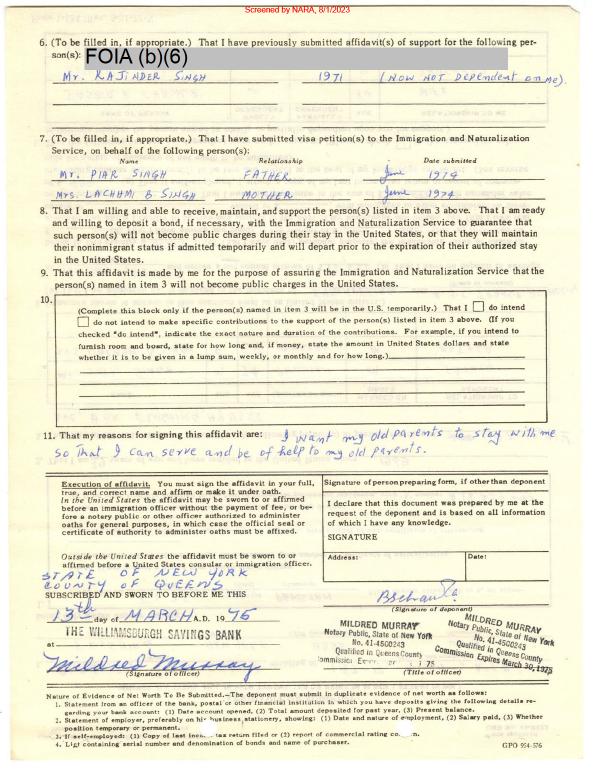 Screened by NARA, 8/1/2023
6. (To be filled in, if appropriate.) That I have previously submitted affidavit(s) of support for the following per-
son(s): FOIA (b)(6)
Mr. RAJINDER SINGH 1971 (NOW NOT DEPENDENT ON ME).
7. (To be filled in, if appropriate.) That I have submitted visa petition(s) to the Immigration and Naturalization
Service, on behalf of the following person(s):
Name Relationship Date submitted
Mr. PIAR SINGH FATHER June 1974
Mrs. LACHHMI B SINGH MOTHER June 1974
8. That I am willing and able to receive, maintain, and support the person(s) listed in item 3 above. That I am ready
and willing to deposit a bond, if necessary, with the Immigration and Naturalization Service to guarantee that
such person(s) will not become public charges during their stay in the United States, or that they will maintain
their nonimmigrant status if admitted temporarily and will depart prior to the expiration of their authorized stay
in the United States.
9. That this affidavit is made by me for the purpose of assuring the Immigration and Naturalization Service that the
person(s) named in item 3 will not become public charges in the United States.
10.
(Complete this block only if the person(s) named in item 3 will be in the U.S. temporarily.) That I do intend
do not intend to make specific contributions to the support of the person(s) listed in item 3 above. (If you
checked "do intend", indicate the exact nature and duration of the contributions. For example, if you intend to
furnish room and board, state for how long and, if money, state the amount in United States dollars and state
whether it is to be given in a lump sum, weekly, or monthly and for how long.)
11. That my reasons for signing this affidavit are: I want my old parents to stay with me
so that I can serve and be of help to my old parents.
Execution of affidavit. You must sign the affidavit in your full,
true, and correct name and affirm or make it under oath.
In the United States the affidavit may be sworn to or affirmed
before an immigration officer without the payment of fee, or be-
fore a notary public or other officer authorized to administer
oaths for general purposes, in which case the official seal or
certificate of authority to administer oaths must be affixed.
Outside the United States the affidavit must be sworn to or
affirmed before a United States consular or immigration officer.
Signature of person preparing form, if other than deponent
I declare that this document was prepared by me at the
request of the deponent and is based on all information
of which I have any knowledge.
SIGNATURE
Address: Date:
STATE OF NEW YORK
COUNTY OF QUEENS
SUBSCRIBED AND SWORN TO BEFORE ME THIS
13th day of MARCH A.D. 1975
THE WILLIAMSBURGH SAVINGS BANK
at
Mildred Murray
(Signature of officer)
(Signature of deponent)
MILDRED MURRAY
Notary Public, State of New York
No. 41-4500243
Qualified in Queens County
MILDRED MURRAY
Notary Public, State of New York
No. 41-4500243
Qualified in Queens County
Commission Expires March 30, 1975
(Title of officer)
Nature of Evidence of Net Worth To Be Submitted.—The deponent must submit in duplicate evidence of net worth as follows:
1. Statement from an officer of the bank, postal or other financial institution in which you have deposits giving the following details re-
garding your bank account: (1) Date account opened, (2) Total amount deposited for past year, (3) Present balance.
2. Statement of employer, preferably on his business stationery, showing: (1) Date and nature of employment, (2) Salary paid, (3) Whether
position temporary or permanent.
3. If self-employed: (1) Copy of last income tax return filed or (2) report of commercial rating
4. List containing serial number and denomination of bonds and name of purchaser.
GPO 954-576